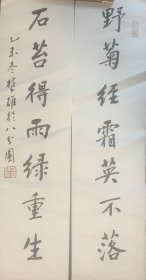 野菊经霜英不落
石苔得雨绿重生
乙未冬楚雄於八分園